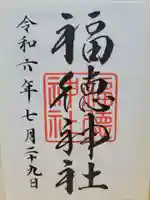 福徳神社
令和六年七月二十九日
福徳神社